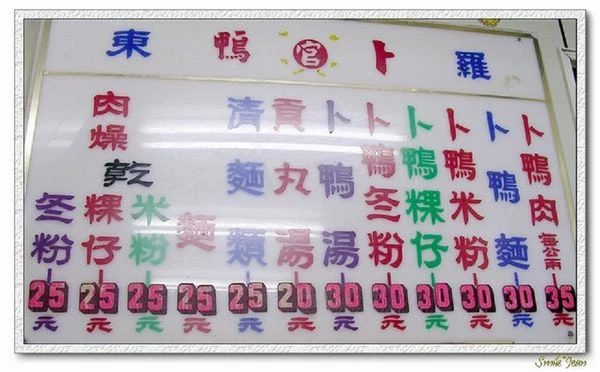 羅卜宮鴨東
卜鴨肉每公兩35元
卜鴨麵30元
卜鴨米粉30元
卜鴨粿仔30元
卜鴨冬粉30元
卜鴨湯30元
貢丸湯20元
清麵類25元
肉燥乾
麵25元
米粉25元
粿仔25元
冬粉25元
Smile*Jean